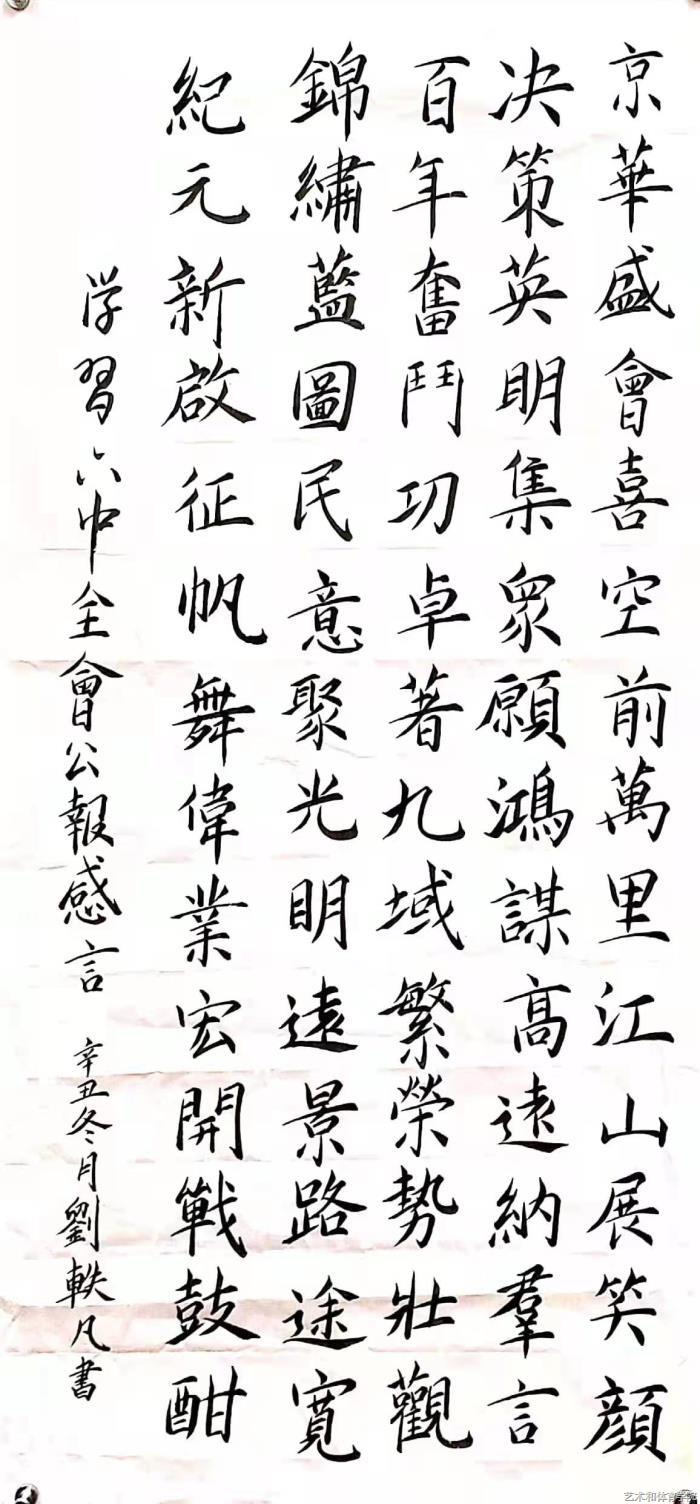 京華盛會喜空前萬里江山展笑顔
决策英明集衆願鴻謀高遠納羣言
百年奮鬥功卓著九域繁榮勢壯觀
錦繡藍圖民意聚光明遠景路途寬
紀元新啟征帆舞偉業宏開戰鼓酣
学習六中全會公報感言 辛丑冬月劉軼凡書
艺术和体育